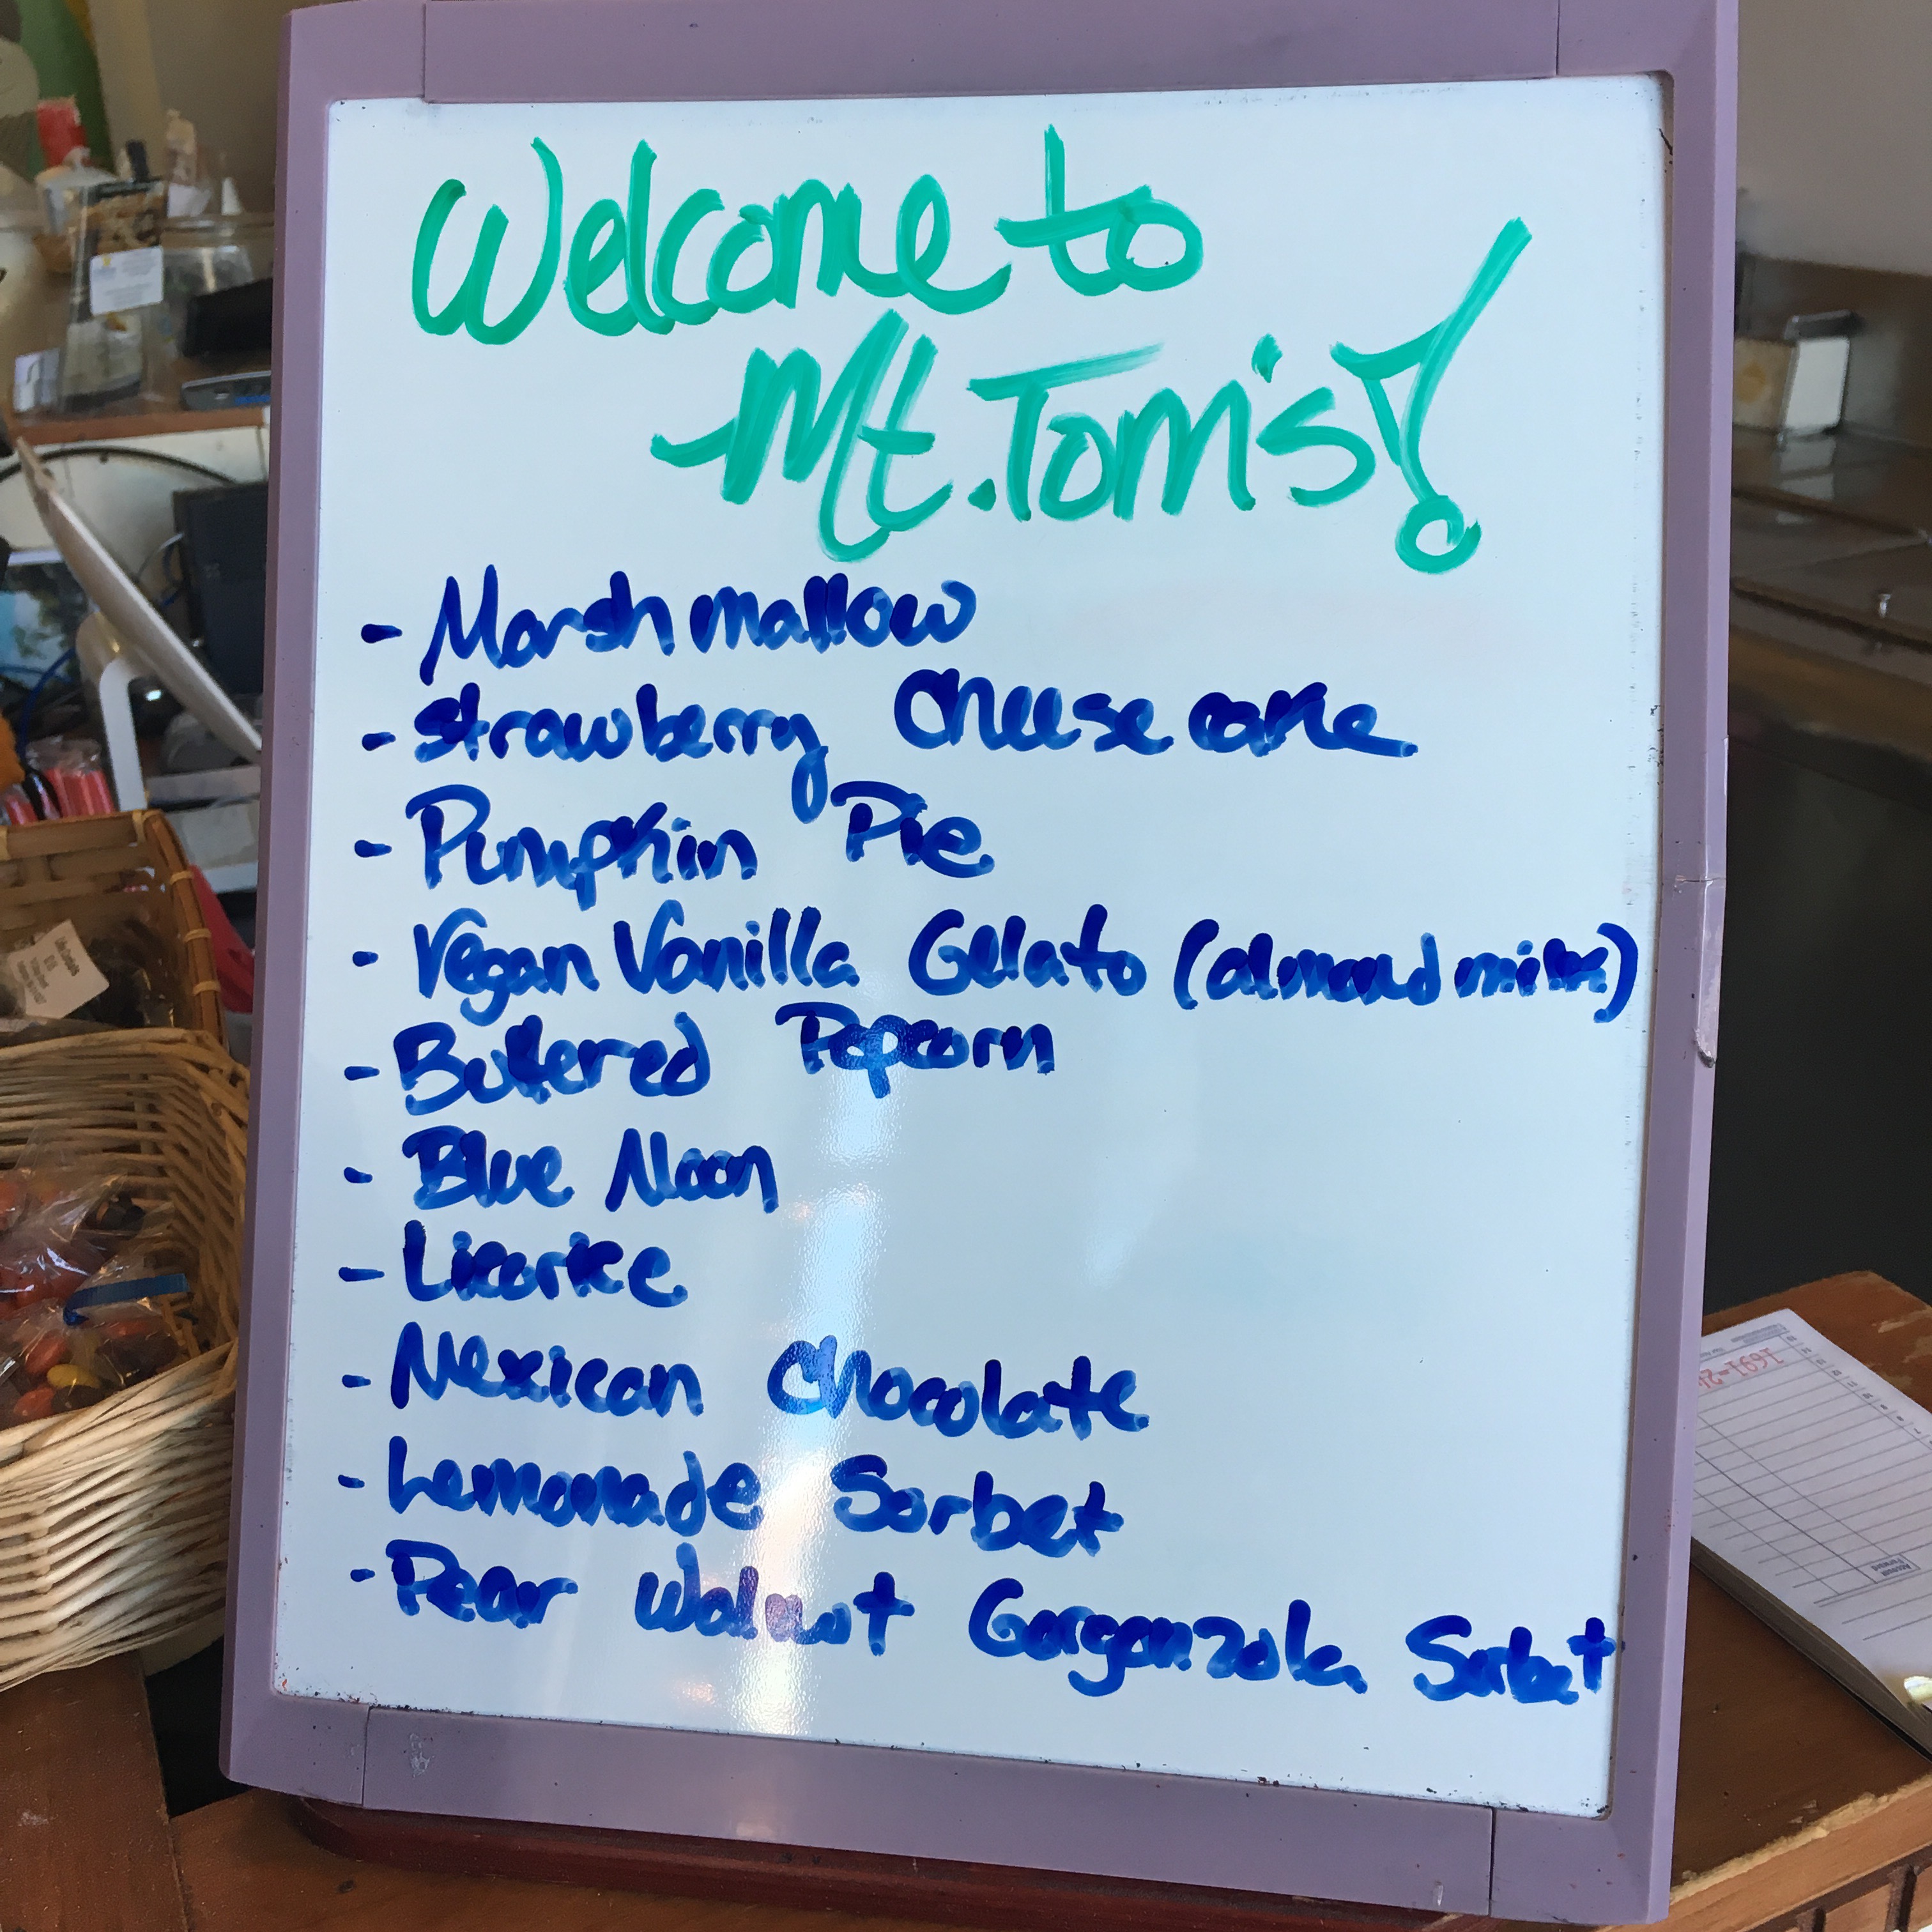 Welcome to
Mt. Tom's!
- Marshmallow
- Strawberry Cheesecake
- Pumpkin Pie
- Vegan Vanilla Gelato (almond milk)
- Buttered Popcorn
- Blue Moon
- Licorice
- Mexican Chocolate
- Lemonade Sorbet
- Pear Walnut Gorgonzola Sorbet